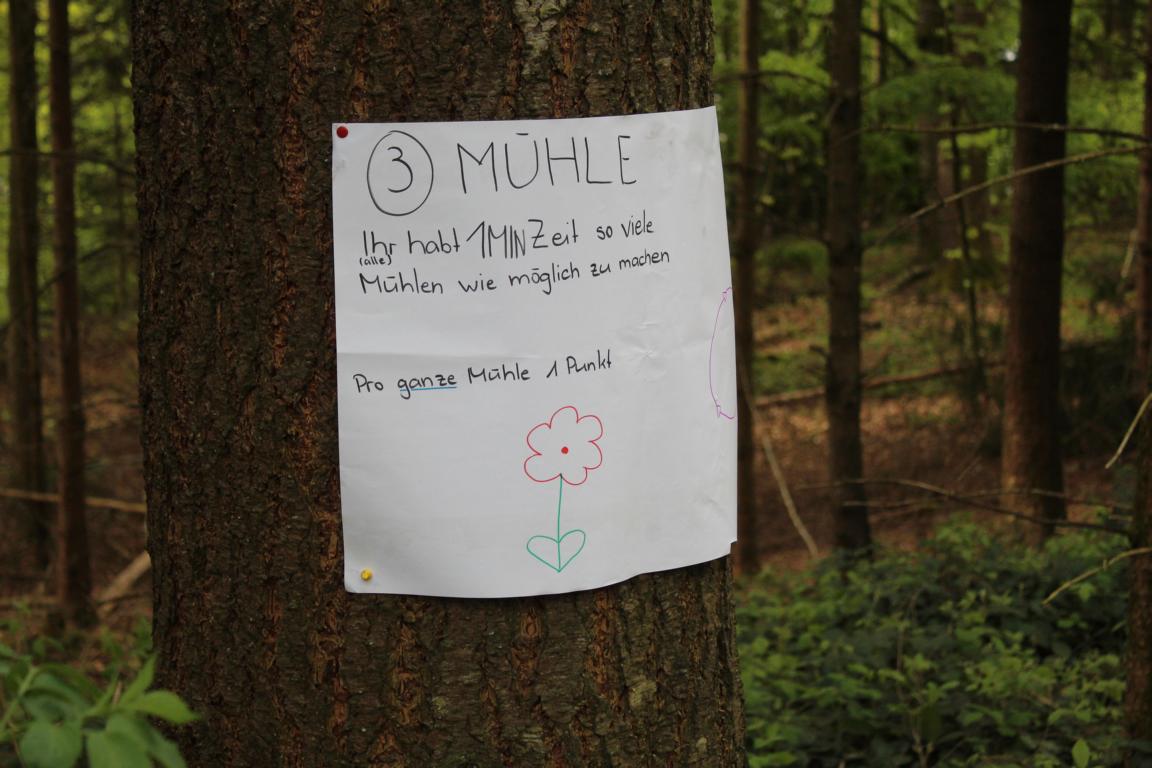 3 MÜHLE
Ihr habt 1MIN Zeit so viele
(alle)
Mühlen wie möglich zu machen
Pro ganze Mühle 1 Punkt